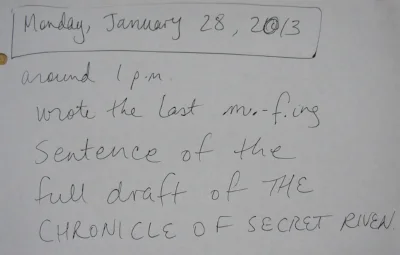 Monday, January 28, 2013
around 1 p.m.
wrote the last m.-f.ing
Sentence of the
full draft of THE
CHRONICLE OF SECRET RIVEN.